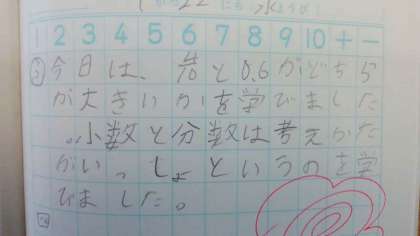 1 2 3 4 5 6 7 8 9 10 + −
②今日は、 と0.6がどちら
が大きいかを学びました
。小数と分数は考えかた
がいっしょというのを学
びました。